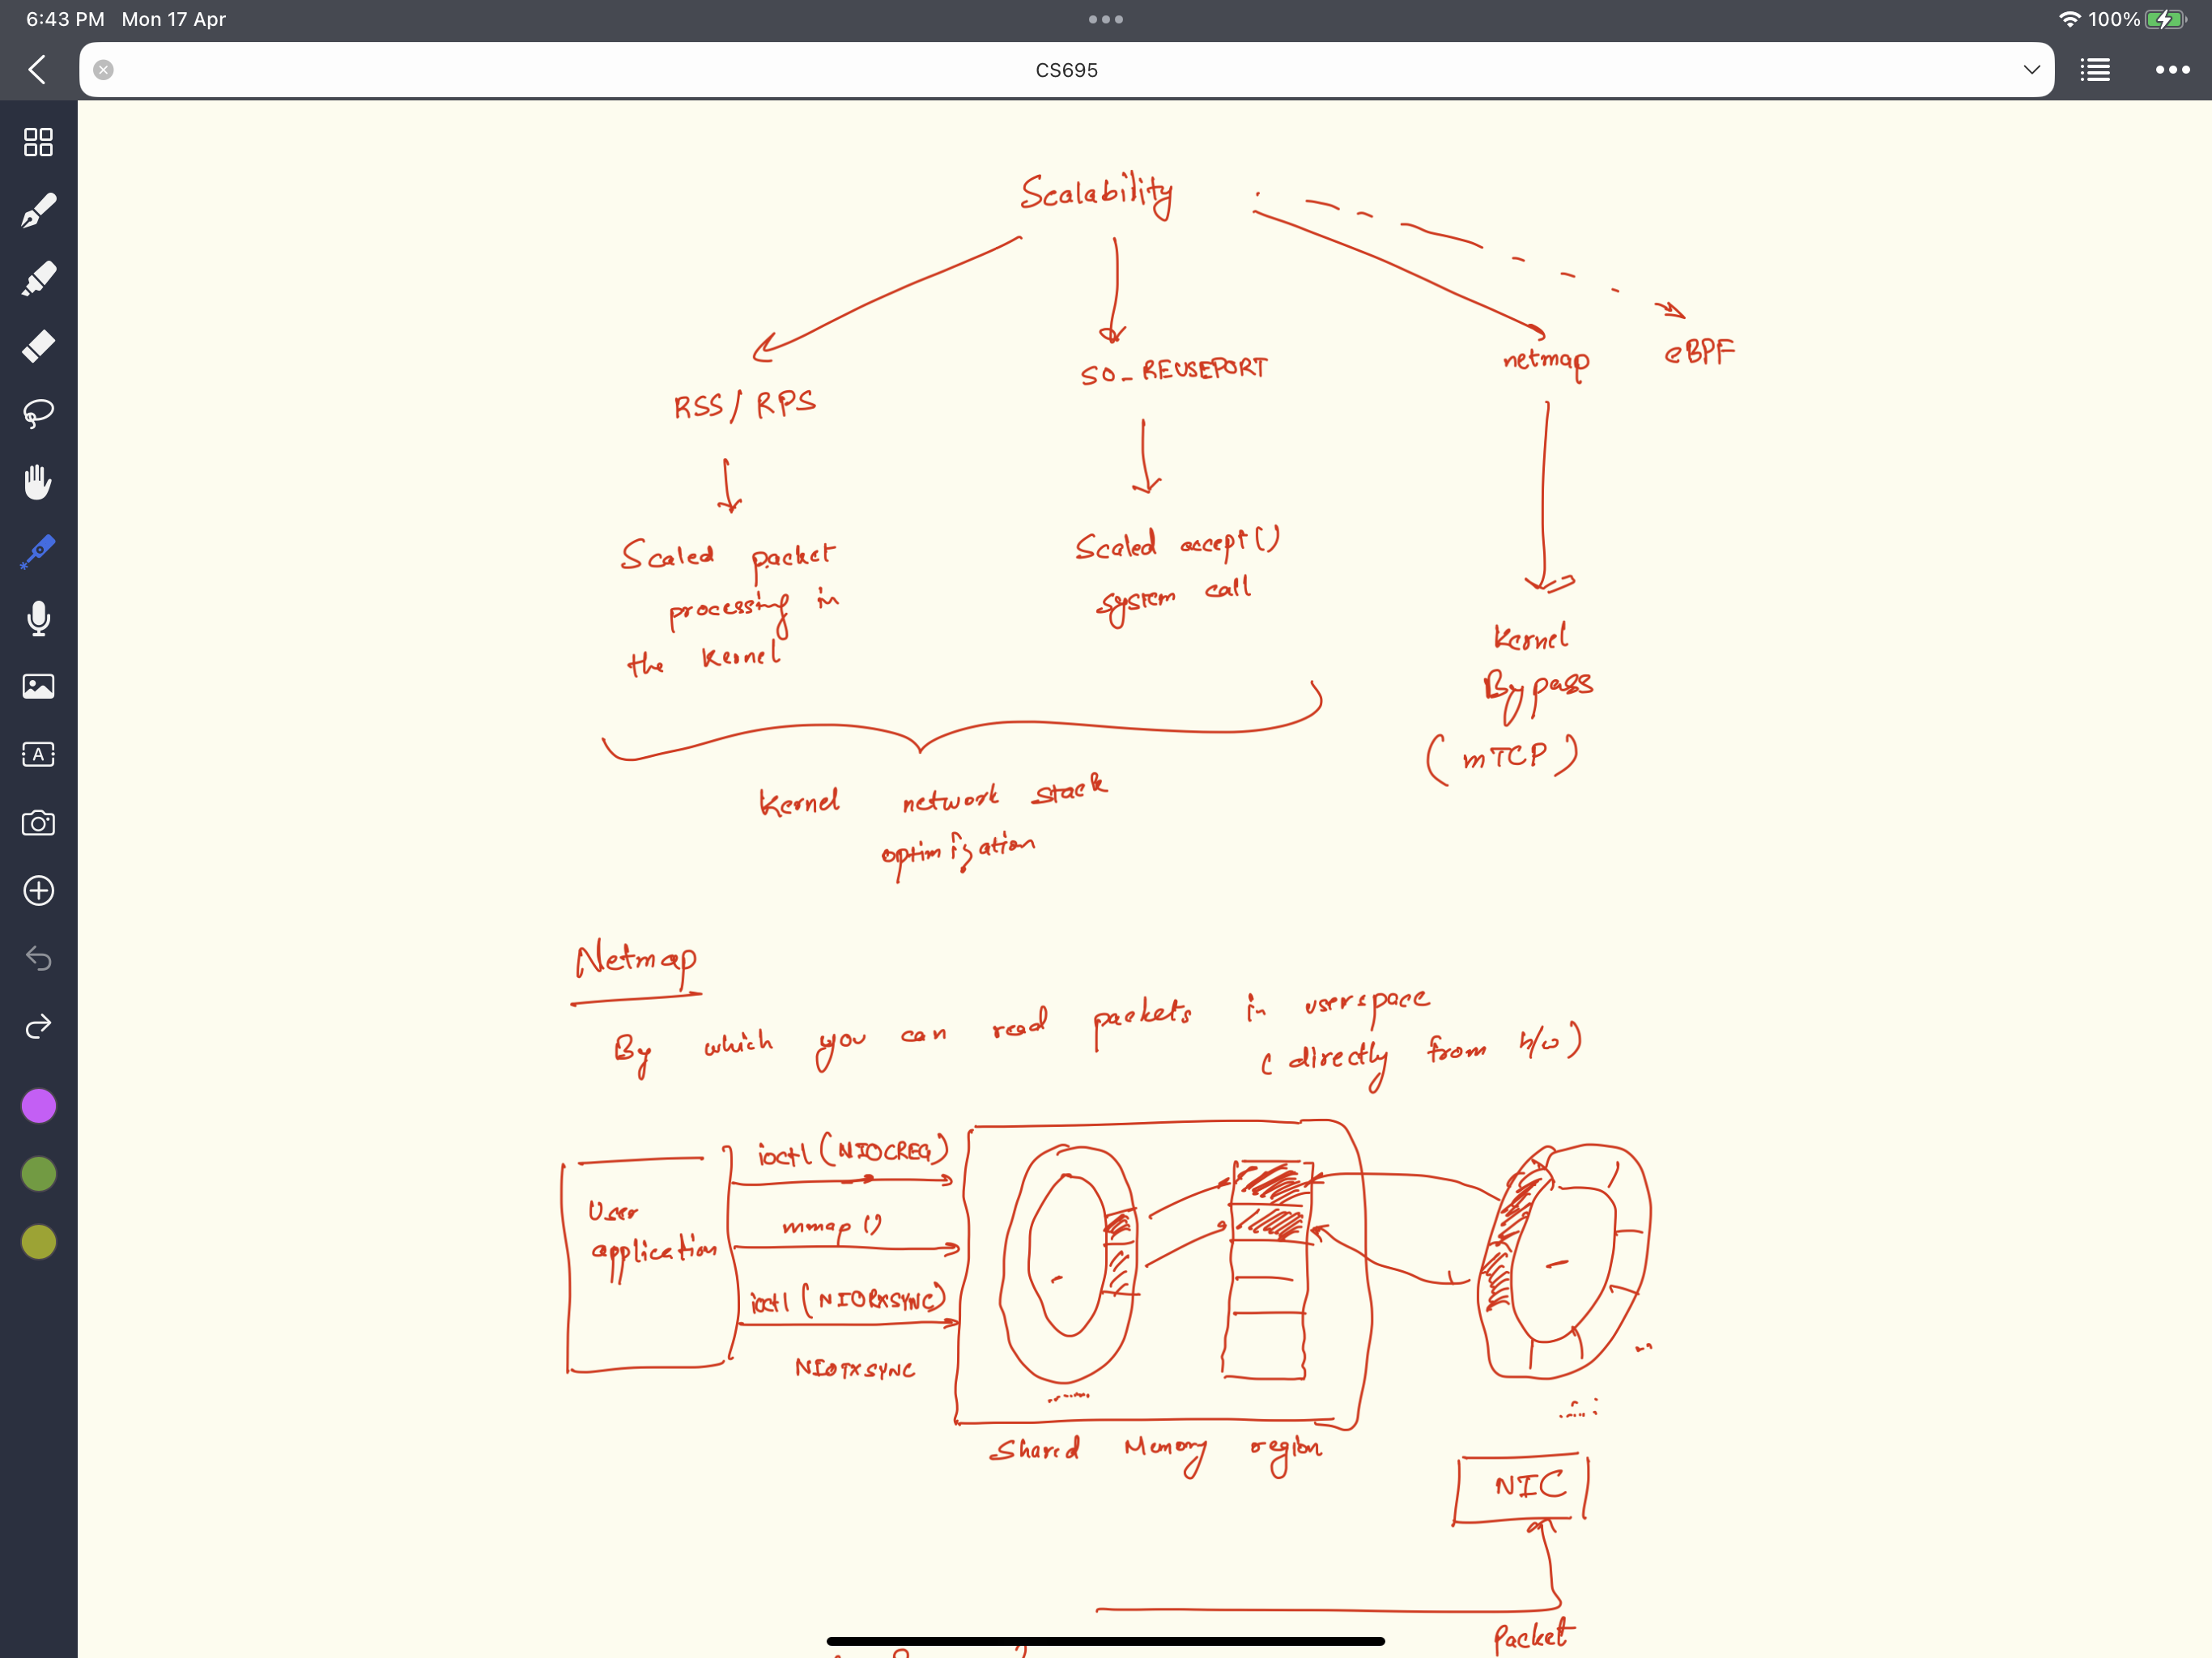 6:43 PM Mon 17 Apr
100%
CS695
Scalability
RSS / RPS
SO_REUSEPORT
netmap
eBPF
Scaled packet
processing in
the Kernel
Scaled accept()
system call
Kernel
Bypass
(mTCP)
Kernel network stack
optimization
Netmap
By which you can read packets in userspace
(directly from h/w)
User
application
ioctl (NIOCREG)
mmap ()
ioctl (NIORXSYNC)
NIOTXSYNC
Shared Memory region
NIC
Packet
A